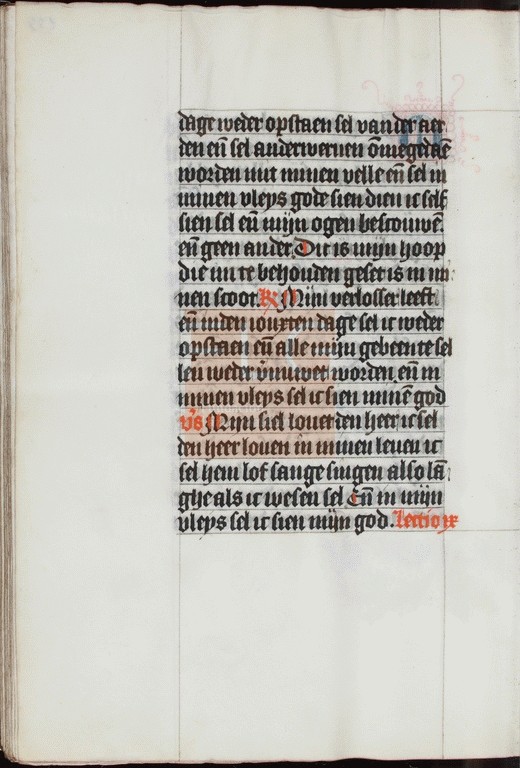 dage weder opstaen sel van der aer
den eñ sel anderweruen ōmegedaē
worden mit minen velle eñ sel in
minen vleys gode sien dien ic self
sien sel eñ mijn ogen bescouwē
eñ geen ander. Dit is mijn hoop
die mi te behouden geset is in mi
nen scoot. R Mijn verlosser leeft
eñ inden ioncxten dage sel ic weder
opstaen eñ alle mijn gebeente sel
len weder v̄nuwet worden eñ in
minen vleys sel ic sien minē god
vs Mijn siel louet den heer ic sel
den heer louen in minen leuen ic
sel hem lof sange singen also lā
ghe als ic wesen sel Eñ in mijn
vleys sel ic sien mijn god. Lectio ix